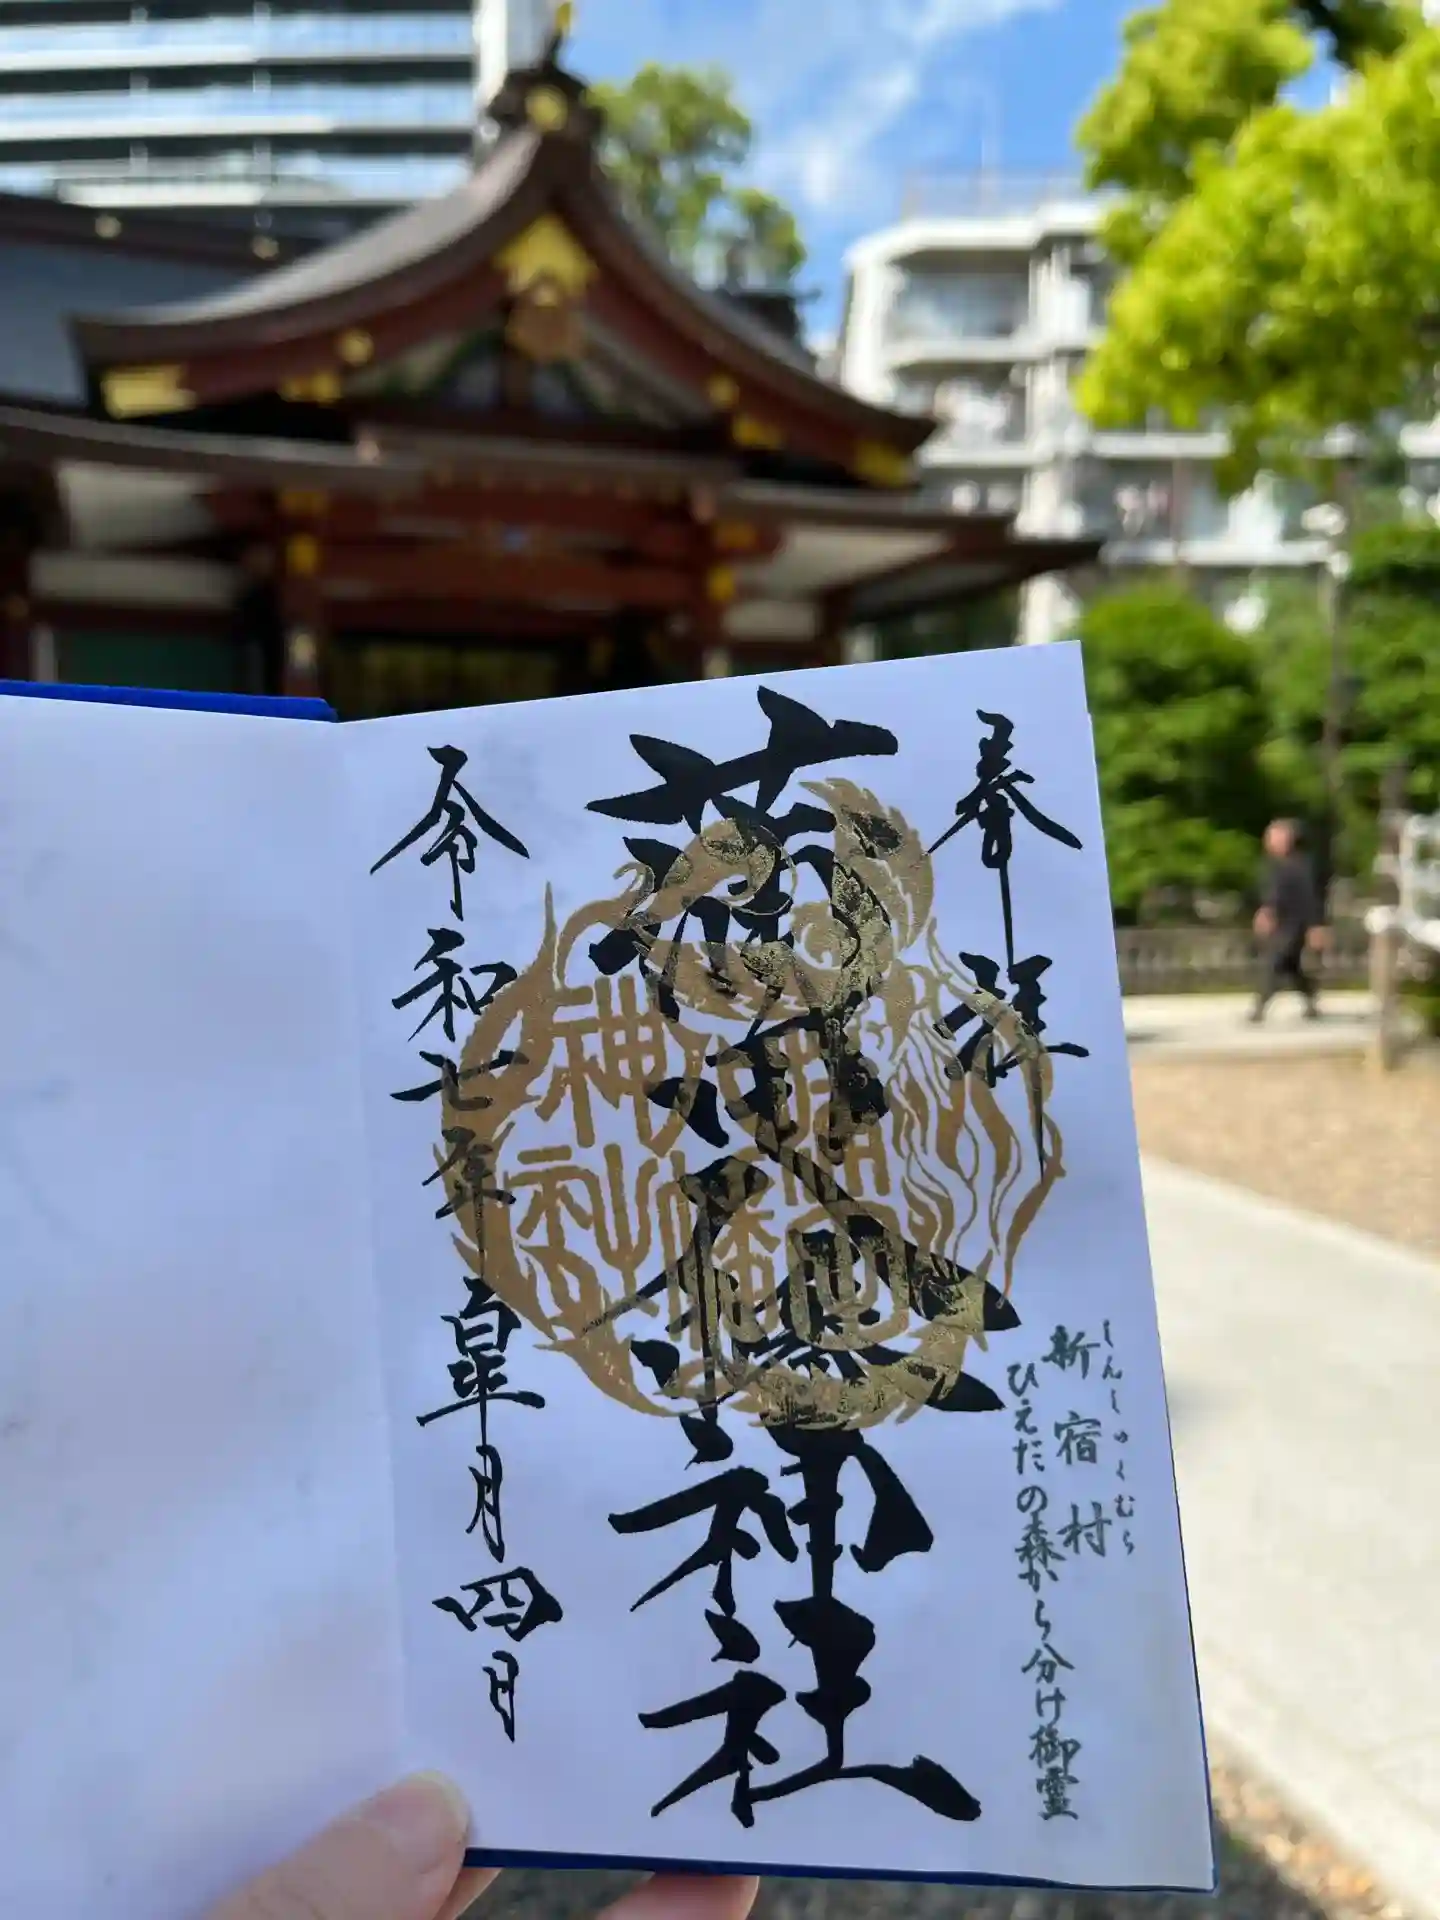 奉拝
しんしゅくむら
新宿村
ひえだの森から分け御霊
蒲田八幡神社
蒲田八幡神社
令和七年皐月四日